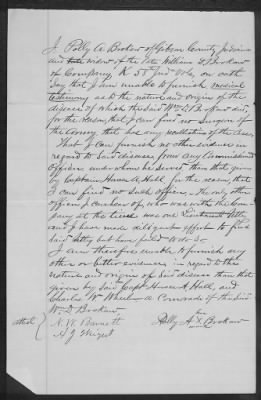 I Polly A. Brokaw of Gibson County Indiana
and widow of the late William D Brokaw
of Company K 58 Ind Vols, on oath
Say that I am unable to furnish medical
testimony as to the nature and origin of the
disease of which the said Wm D Brokaw died,
for the reason, that I can find no Surgeon of
the Army that has any recollection of the case
That I can furnish no other evidence in
regard to Said disease from any Commissioned
Officer under whom he served than that given
by Captain Hall, for the reason that
I can find no such officer. The only other
officer, I can hear of, who was with the Com-
pany at the time was one Lieutenant
and I have made diligent effort to find
said but have failed to do so.
I am therefore unable to furnish any
other or better evidence in regard to the
nature and origin of Said disease than that
given by Said Capt Hall, and
Charles Wm Wheeler a Comrade of the said
Wm D Brokaw
attest
N. W. Barnett
A J Wright
Polly A X Brokaw
her
mark